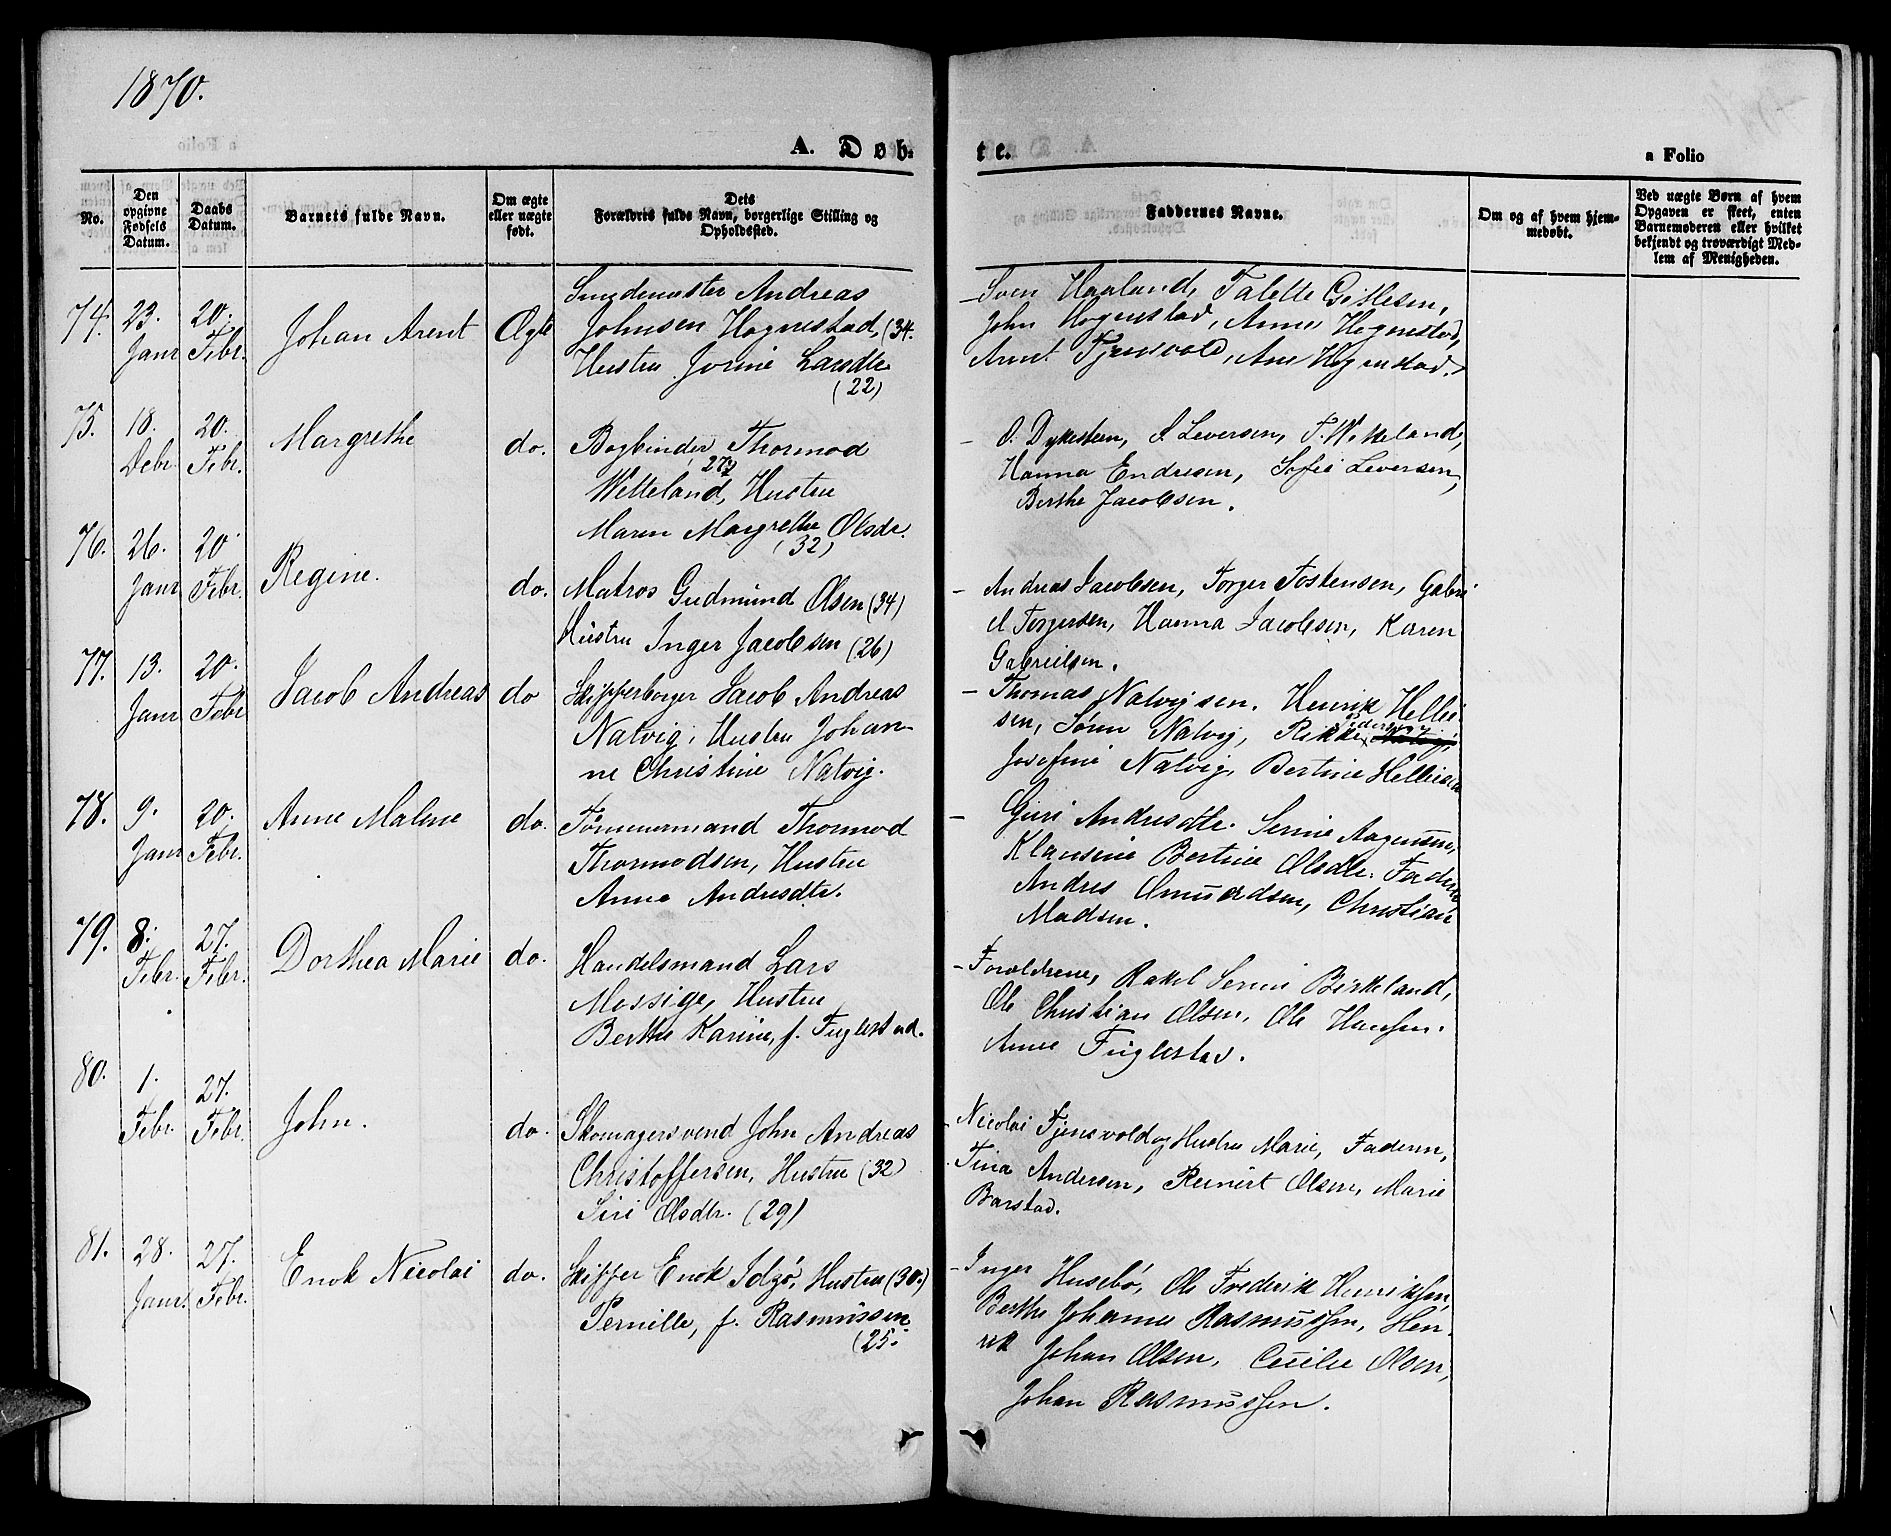 1870.
A. Døb-
te.
a Folio
No.
Den opgivne Fødsels Datum.
Daabs Datum.
Barnets fulde Navn.
Om ægte eller uægte født.
Dets Forældris fulde Navn, borgerlige Stilling og Opholdssted.
Faddernes Navne.
Om og af hvem hjem-
medøbt.
Ved uægte Børn af hvem
Opgaven er skeet, enten
Barnemoderen eller hvilket
bekjendt og troværdigt Med-
lem af Menigheden.
74. 23. Janr 20. Febr. Johan Arent Ægte
Smedemester Andreas
Johnsen Hognestad, (34.
Hustru Jorine Larsdtr
(22)
- Sven Haaland, Talette Gitlesen,
John Hognestad, Anne Hognestad,
Arent Fjensvold, Ane Hognestad.
75. 18. Debr. 20. Febr. Margrethe do.
Bogbinder Thormod
27
Wetteland, Hustru
Maren Margrethe Olsdr.
(32)
- O. Dykesteen, Leversen, T. Wetteland,
Hanna Endresen, Sofie Leversen,
Berthe Jacobsen.
76. 26. Janr 20 Febr. Regine. do.
Matros Gudmund Olsen (34)
Hustru Inger Jacobsen (26)
- Andreas Jacobsen, Torger Tostensen, Gabri
el Torgersen, Hanna Jacobsen, Karen
Gabrielsen.
77. 13. Janr 20. Febr Jacob Andreas do
Skipperborger Jacob Andreas
Natvig, Hustru Johan-
ne Christine Natvig.
- Thomas Natvigsen. Henrik Hellie-
sen, Søren Natvig, Rikke Pedersen
Josefine Natvig, Bertine Helliesen
78. 9. Janr 20. Febr. Anne Malene do.
Tømmermand Thormod
Thormodsen, Hustru
Anne Andresdtr.
- Guri Andresdtr. Serine Aagensen,
Klausine Bertine Olsdtr. Faderen
Andres Omundsen, Christian
Madsen.
79. 8. Febr. 27. Febr. Dorthea Marie do.
Handelsmand Lars
Mossige, Hustru
Berthe Karine, f. Fuglestad.
- Forældrene, Rakel Serine Birkeland,
Ole Christian Olsen, Ole Hansen.
Anne Fuglestad.
80. 1. Febr. 27. Febr. John. do.
Skomagersvend John Andreas
Christoffersen, Hustru (32)
Siri Olsdtr. (29)
- Nicolai Fjensvold og Hustru Marie, Faderen,
Tina Andersen, Reinert Olsen, Marie
Barstad.
81. 28. Janr. 27. Febr. Enok Nicolai do.
Skipper Enok Idsø, Hustru (30.)
Pernille, f. Rasmussen
(25.
- Inger Husebø, Ole Frederik Henriksen,
Berthe Johanne Rasmussen, Hen-
rik Johan Olsen, Cecilie Olsen,
Johan Rasmussen.